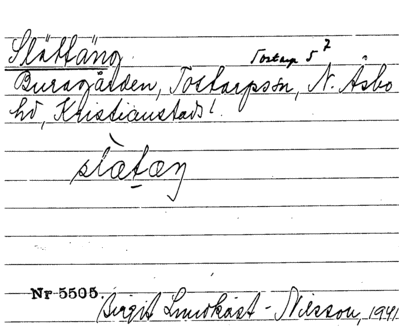 Slättäng Tostarp 5⁷
Buragården, Tostarpssn, N. Åsbo
hd, Kristianstads l.
slætæŋ
Nr 5505.
Birgit Lundkvist-Nilsson, 1941